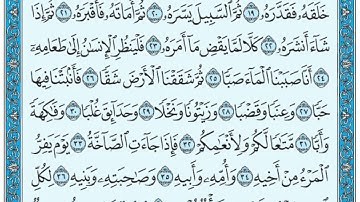 خَلَقَهُۥ فَقَدَّرَهُۥ ١٩ ثُمَّ ٱلسَّبِيلَ يَسَّرَهُۥ ٢٠ ثُمَّ أَمَاتَهُۥ فَأَقْبَرَهُۥ ٢١ ثُمَّ إِذَا
شَآءَ أَنشَرَهُۥ ٢٢ كَلَّا لَمَّا يَقْضِ مَآ أَمَرَهُۥ ٢٣ فَلْيَنظُرِ ٱلْإِنسَٰنُ إِلَىٰ طَعَامِهِۦٓ
٢٤ أَنَّا صَبَبْنَا ٱلْمَآءَ صَبًّا ٢٥ ثُمَّ شَقَقْنَا ٱلْأَرْضَ شَقًّا ٢٦ فَأَنۢبَتْنَا فِيهَا
حَبًّا ٢٧ وَعِنَبًا وَقَضْبًا ٢٨ وَزَيْتُونًا وَنَخْلًا ٢٩ وَحَدَآئِقَ غُلْبًا ٣٠ وَفَٰكِهَةً
وَأَبًّا ٣١ مَّتَٰعًا لَّكُمْ وَلِأَنْعَٰمِكُمْ ٣٢ فَإِذَا جَآءَتِ ٱلصَّآخَّةُ ٣٣ يَوْمَ يَفِرُّ
ٱلْمَرْءُ مِنْ أَخِيهِ ٣٤ وَأُمِّهِۦ وَأَبِيهِ ٣٥ وَصَٰحِبَتِهِۦ وَبَنِيهِ ٣٦ لِكُلِّ